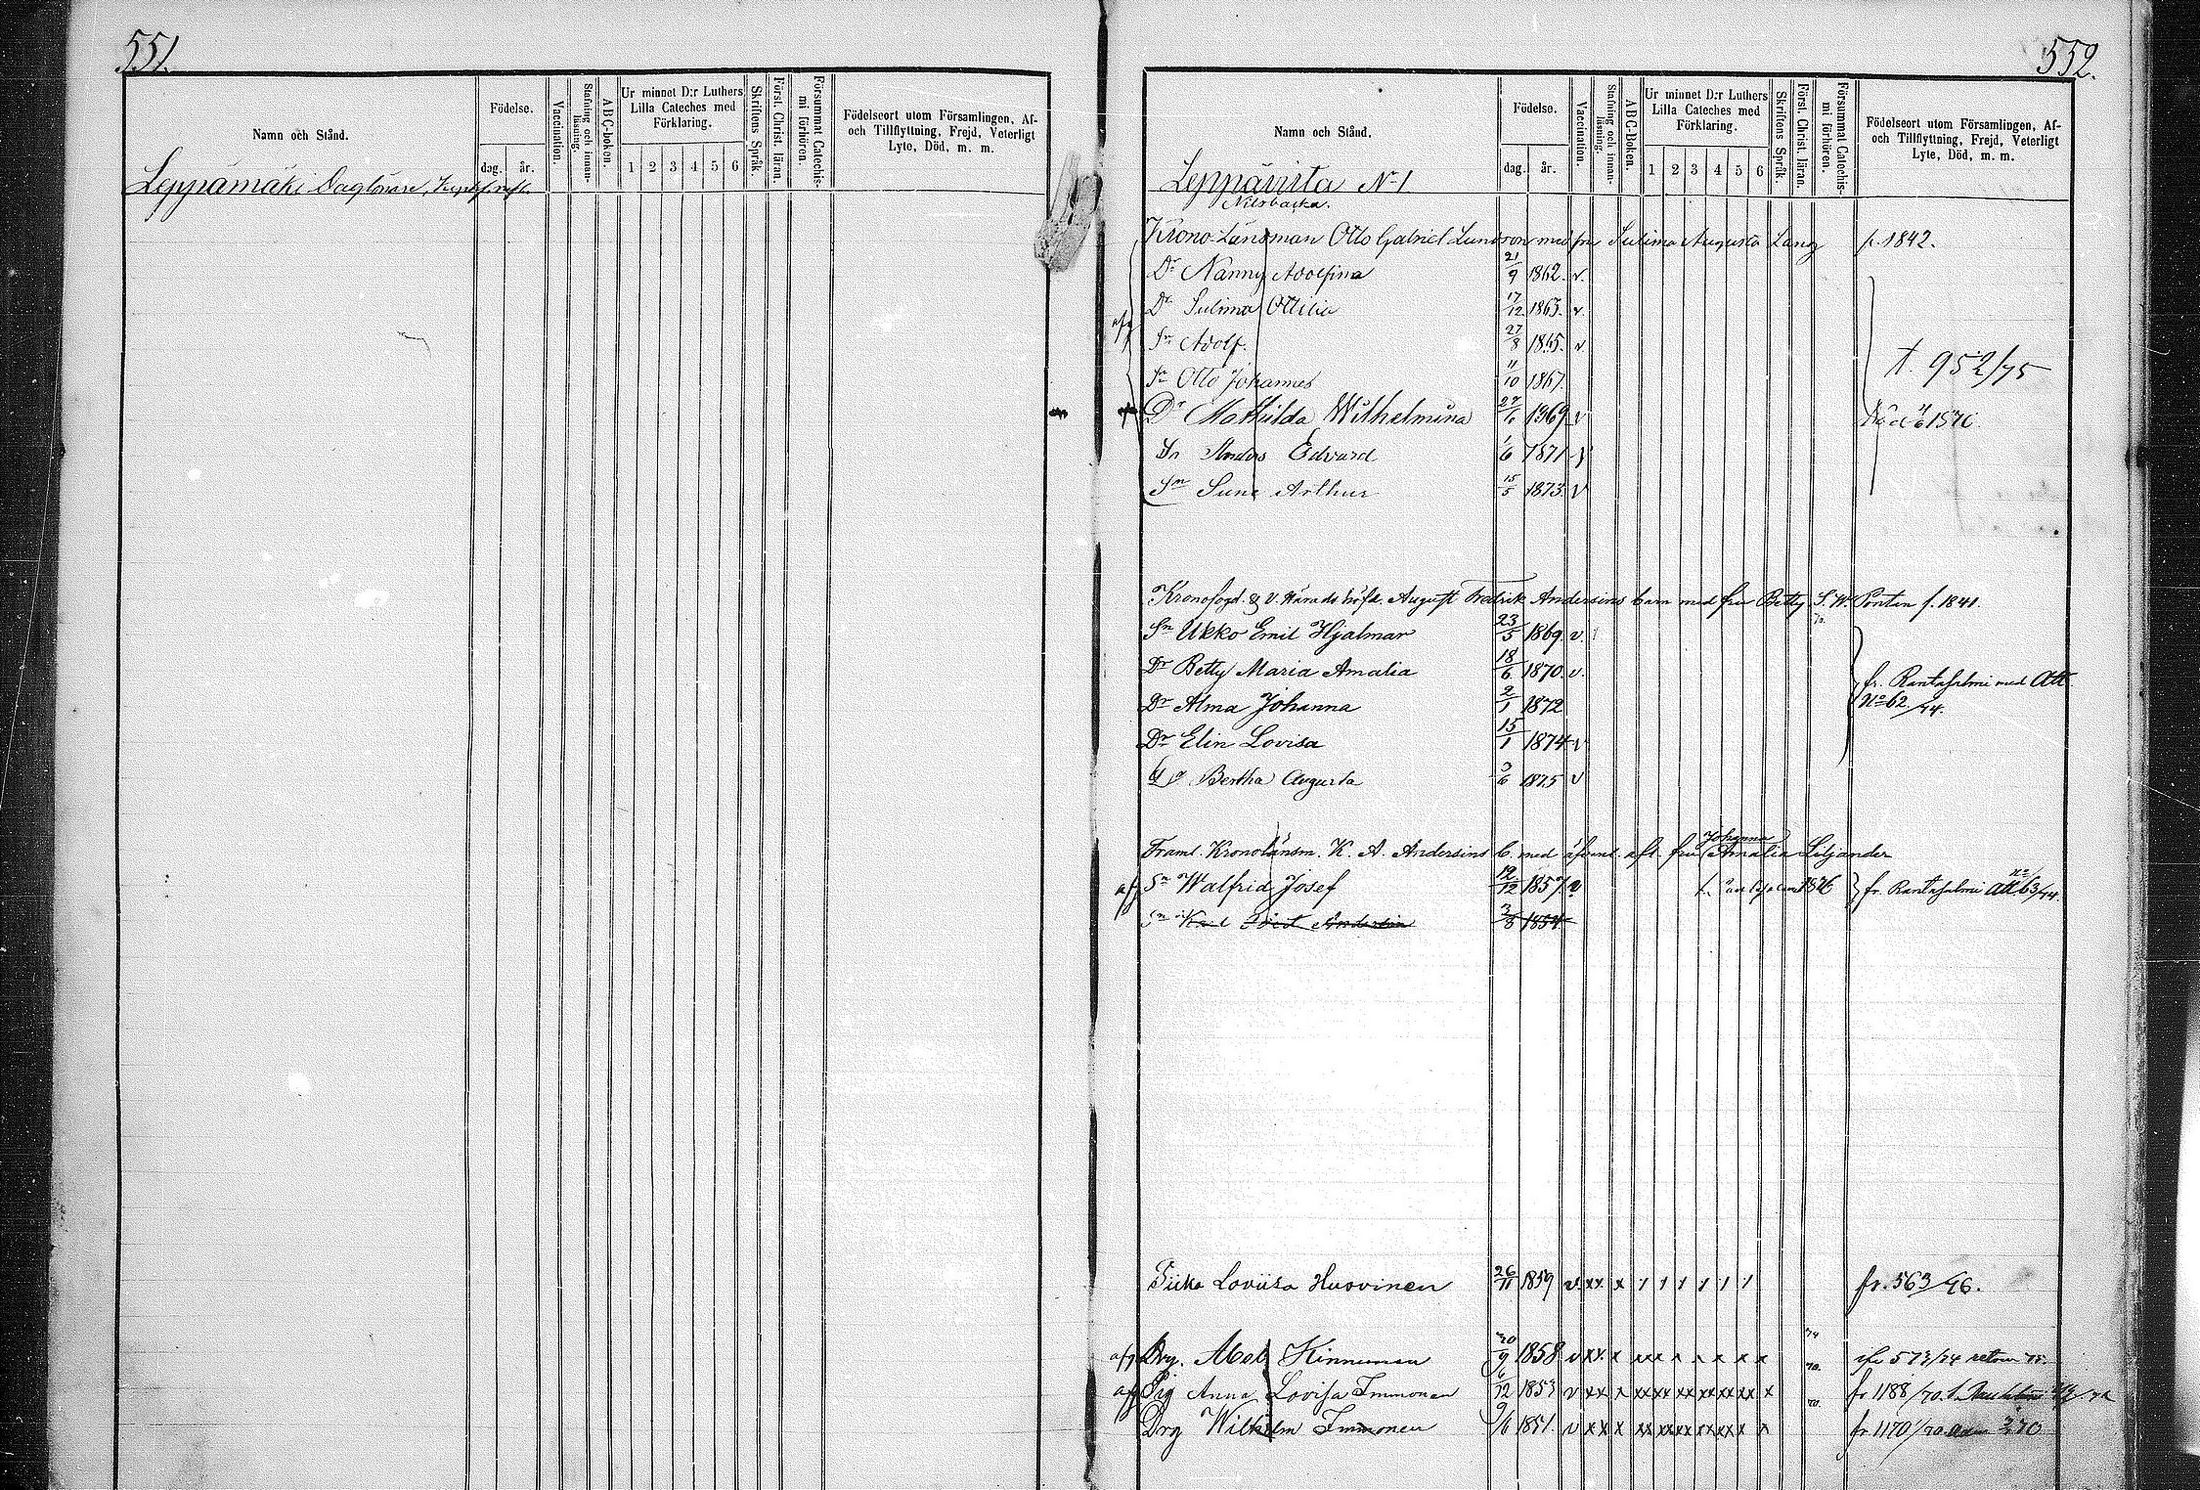 551.
Namn och Stånd.
Födelse.
dag. år.
Vaccination.
Stafning och innan-läsning.
ABC-boken.
Ur minnet D:r Luthers Lilla Cateches med Förklaring.
1 2 3 4 5 6
Skriftens Språk.
Först. Christ. läran.
Försummat Catechis-mi förhören.
Födelseort utom Församlingen, Af- och Tillflyttning, Frejd, Veterligt Lyte, Död, m. m.
Leppämäki
552.
Namn och Stånd.
Födelse.
dag. år.
Vaccination.
Stafning och innan-läsning.
ABC-boken.
Ur minnet D:r Luthers Lilla Cateches med Förklaring.
1 2 3 4 5 6
Skriftens Språk.
Först. Christ. läran.
Försummat Catechis-mi förhören.
Födelseort utom Församlingen, Af- och Tillflyttning, Frejd, Veterligt Lyte, Död, m. m.
Leppävirta N:1
Krono-Länsman Otto Gabriel med fru Augusta Lang f. 1842.
Dr Nanny Adolfina 21/9 1862. v.
Dr Ottilia 17/12 1863. v.
afg Sn Adolf. 27/8 1865. v.
Sn Otto Johannes 11/10 1867. t. 952/75
Dr Mathilda Wilhelmina 27/6 1869 v
Sn Anders Edvard 1/6 1871 v
Sn Sune Arthur 15/5 1873. v
Kronofogd. & v. Häradshöfd. August Fredrik Andersins barn med fru Betty S. W. Pontan f. 1841.
Sn Ukko Emil Hjalmar 23/5 1869 v.
Dr Betty Maria Amalia 18/6 1870. v.
fr. Rantasalmi med Att
Dr Alma Johanna 2/1 1872 No 62/74.
Dr Elin Lovisa 15/1 1874 v
Dr Bertha Augusta 3/6 1875 v
Johanna
Framl. Kronolänsm. K. A. Andersins b. med äfvenl. afl. fru Amalia Liljander
afg Sn Walfrid Josef 12/12 1857 v 1876 fr. Rantasalmi Att No 63/74.
Sn Andersin 3/8 1854
Piika Loviisa Huovinen 26/11 1859 v. xx x 1 1 1 1 1 1 fr. 563/76.
afg Drg. Abel Kinnunen 30/9 1858 v xx x xxx x x x x x 573/74 retour 75.
afg Pig Anna Lovisa Immonen 6/12 1853 v xx x xx xx xx xx xx x fr 1188/70.
Drg Wilhelm Immonen 9/6 1851. v xx x fr 1170/70